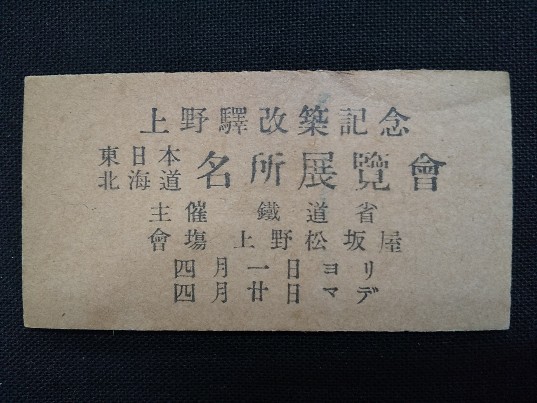 上野驛改築記念
東日本
北海道
名所展覽會
主催 鐵道省
會場 上野松坂屋
四月一日ヨリ
四月廿日マデ